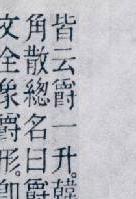 皆云爵一升。韓
角散總名曰爵
文全象爵形。卽